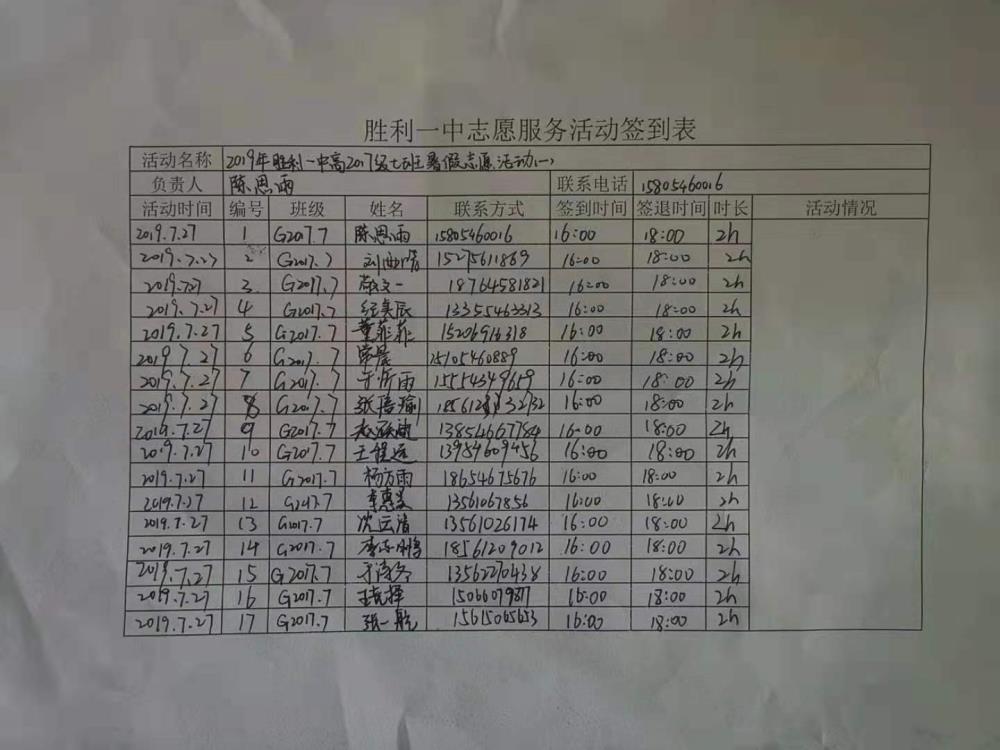 胜利一中志愿服务活动签到表
活动名称 2019年胜利一中高2017级七班暑假志愿活动(一)
负责人 陈思雨 联系电话 15805460016
活动时间 编号 班级 姓名 联系方式 签到时间 签退时间 时长 活动情况
2019.7.27 1 G2017.7 陈思雨 15805460016 16:00 18:00 2h
2019.7.27 2 G2017.7 15275611869 16:00 18:00 2h
2019.7.27 3 G2017.7 18764581821 16:00 18:00 2h
2019.7.27 4 G2017.7 13355463313 16:00 18:00 2h
2019.7.27 5 G2017.7 董菲菲 15206916318 16:00 18:00 2h
2019.7.27 6 G2017.7 常晨 15105460889 16:00 18:00 2h
2019.7.27 7 G2017.7 于昕雨 15554349659 16:00 18:00 2h
2019.7.27 8 G2017.7 16:00 18:00 2h
2019.7.27 9 G2017.7 13854667784 16:00 18:00 2h
2019.7.27 10 G2017.7 王程远 13954609456 16:00 18:00 2h
2019.7.27 11 G2017.7 杨方雨 18654675676 16:00 18:00 2h
2019.7.27 12 G2017.7 13561067856 16:00 18:00 2h
2019.7.27 13 G2017.7 沈云清 13561026174 16:00 18:00 2h
2019.7.27 14 G2017.7 18561209012 16:00 18:00 2h
2019.7.27 15 G2017.7 13562270438 16:00 18:00 2h
2019.7.27 16 G2017.7 16:00 18:00 2h
2019.7.27 17 G2017.7 张一航 15615065653 16:00 18:00 2h